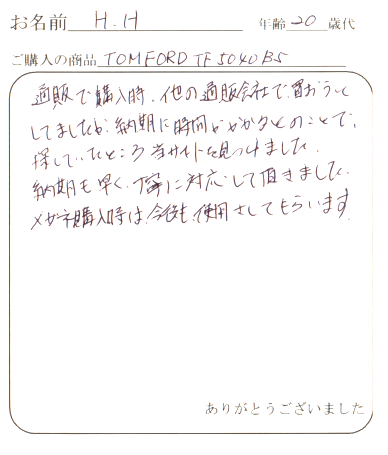 お名前 H.H 年齢 20 歳代
ご購入の商品 TOMFORD TF5040 B5
通販で購入時、他の通販会社で買おうと
してましたが、納期に時間がかかるとのことで、
探していたところ当サイトを見つけました。
納期も早く、丁寧に対応して頂きました。
メガネ購入時は、今後も使用さしてもらいます。
ありがとうございました